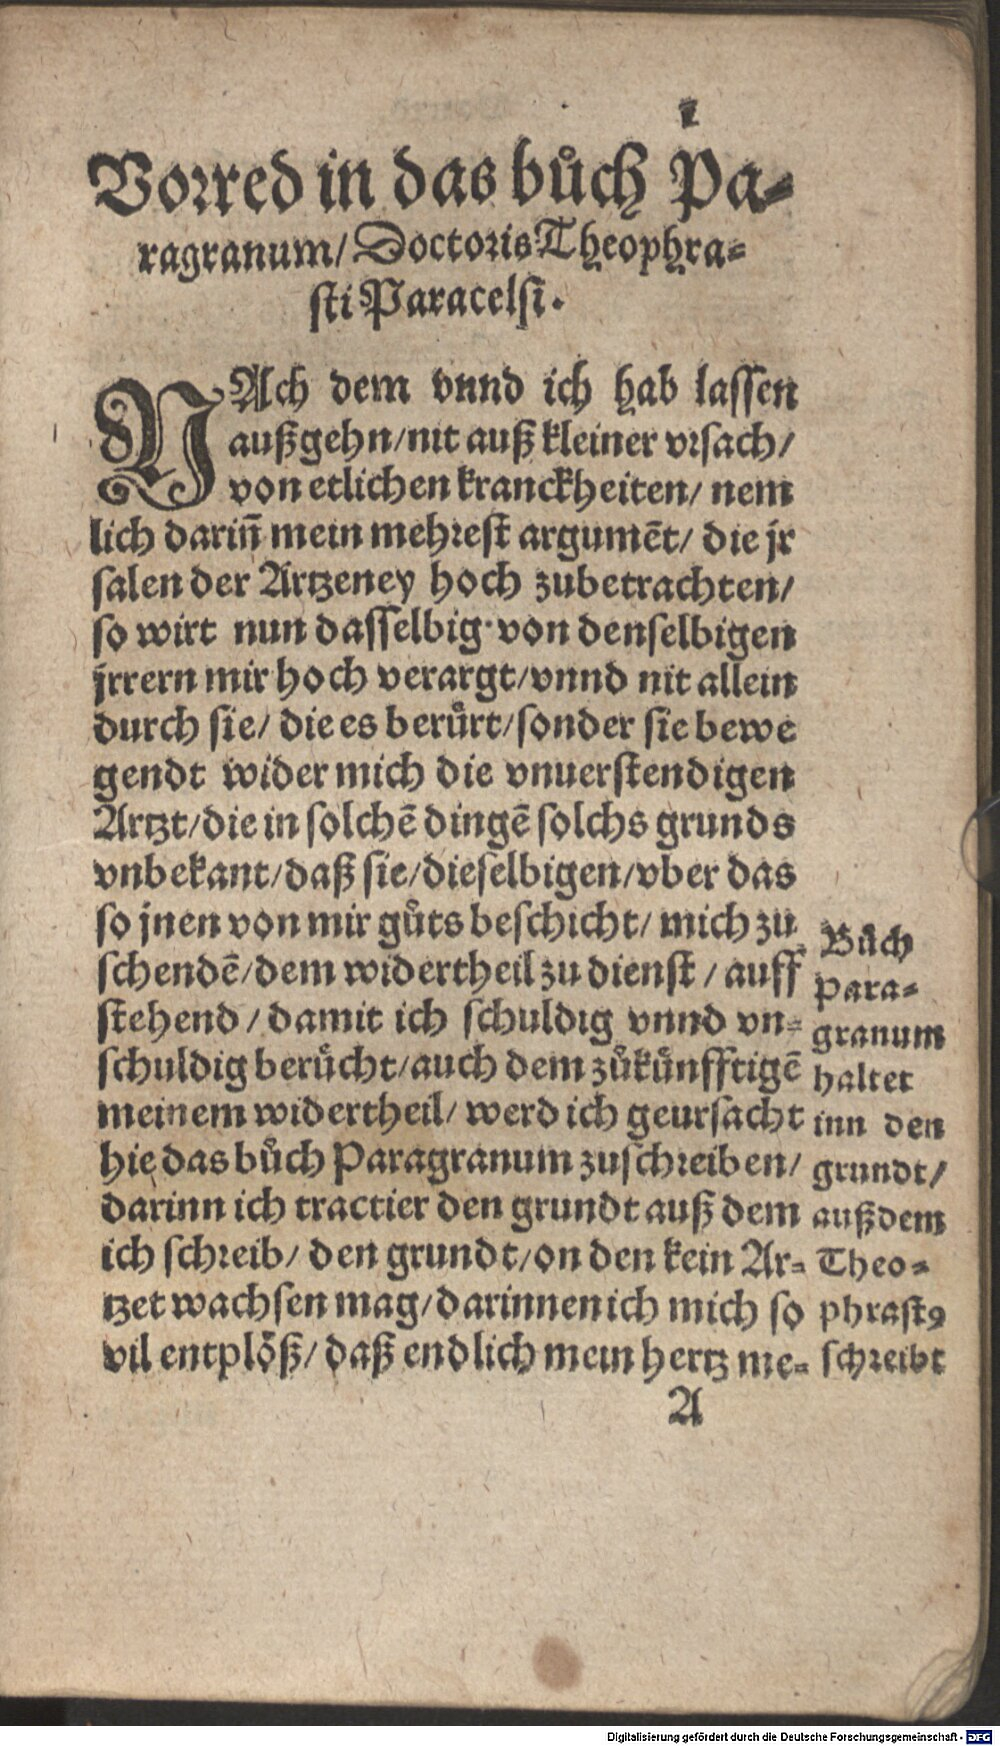 1
Vorred in das bůch Pa-
ragranum/ Doctoris Theophra-
sti Paracelsi.
NAch dem vnnd ich hab lassen
außgehn/nit auß kleiner vrsach/
von etlichen kranckheiten/ nem
lich darin̄ mein mehrest argumēt/ die jr
salen der Artzeney hoch zubetrachten/
so wirt nun dasselbig von denselbigen
jrrern mir hoch verargt/vnnd nit allein
durch sie/ die es berůrt/sonder sie bewe
gendt wider mich die vnuerstendigen
Artzt/die in solchē dingē solchs grunds
vnbekant/daß sie/dieselbigen/vber das
so jnen von mir gůts beschicht/ mich zu
schendē/dem widertheil zu dienst / auff
stehend / damit ich schuldig vnnd vn-
schuldig berůcht/auch dem zůkůnfftigē
meinem widertheil/ werd ich geursacht
hie das bůch Paragranum zuschreiben/
darinn ich tractier den grundt auß dem
ich schreib/ den grundt/on den kein Ar-
tzet wachsen mag/darinnen ich mich so
vil entplöß/ daß endlich mein hertz me-
Bůch
Para-
granum
haltet
inn den
grundt/
außdem
Theo-
phrastꝰ
schreibt
A
Digitalisierung gefördert durch die Deutsche Forschungsgemeinschaft - DFG